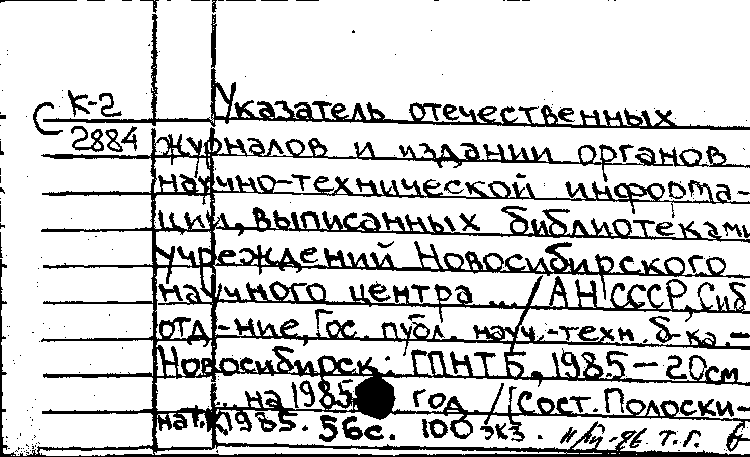 С К-2
2884
Указатель отечественных
журналов и издании органов
научно-технической информа-
ции, выписанных библиотеками
учреждений Новосибирского
научного центра ... / АН СССР, Сиб.
отд-ние, Гос. публ. науч.-техн. б-ка. –
Новосибирск: ГПНТБ, 1985 – 20см
... на 1985 год / [Сост. Полоски-
на Т.К. 1985. 56с. 100 экз.